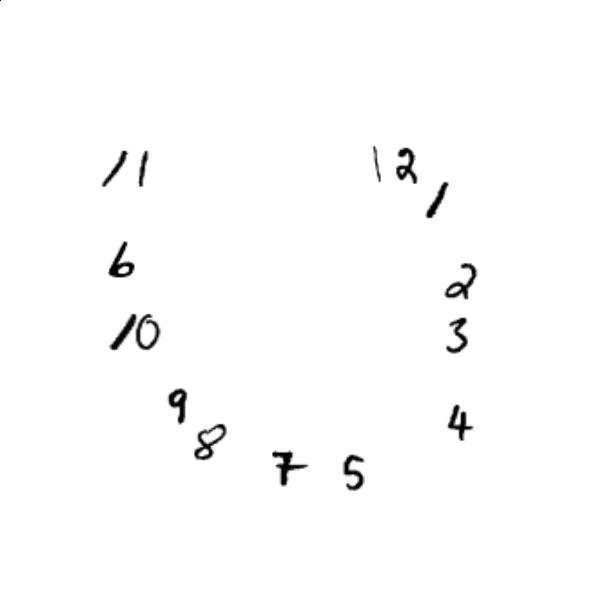 11 12
1
6
2
10 3
9
4
8
7 5